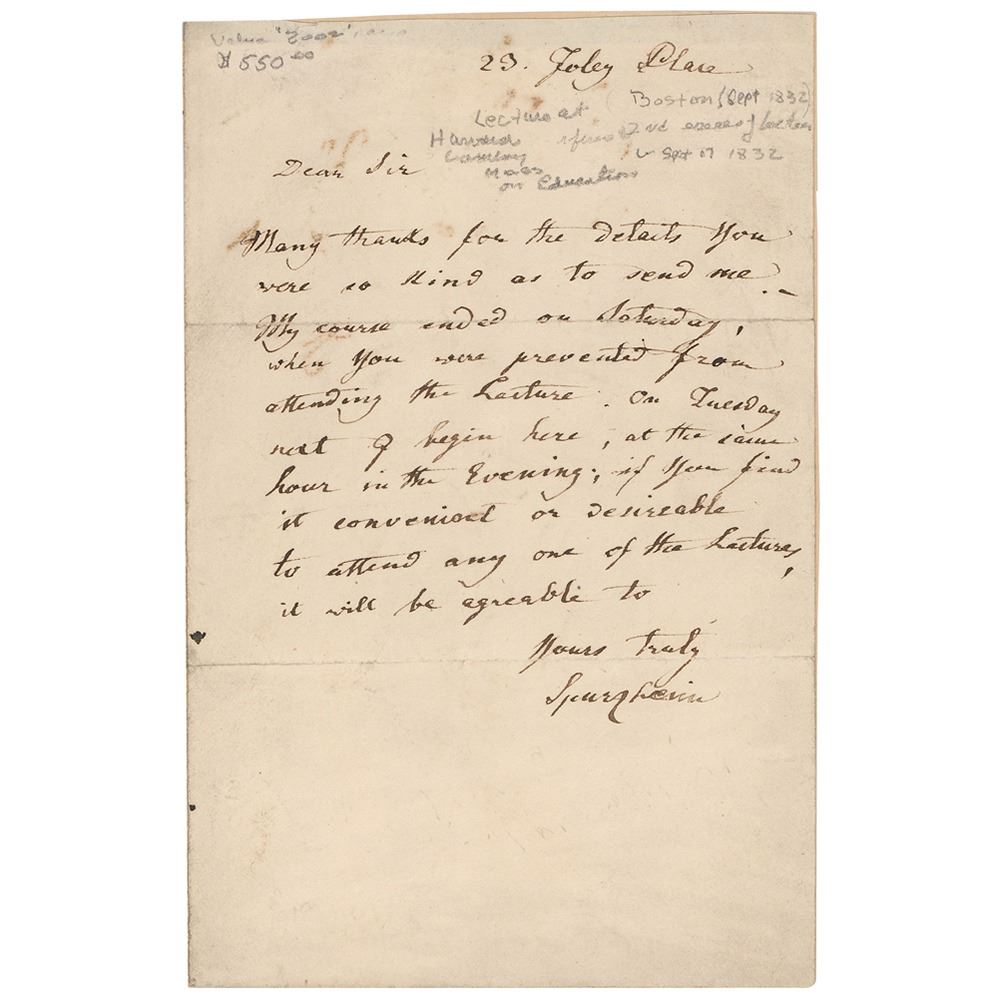 Value "2002"
$550.00
23. Foley Place
Lecture at
Harvard
Mass
on Education
Boston (Sept 1832)
2nd of
Sept 17 1832
Dear Sir
Many thanks for the details You
were so kind as to send me. -
My course ended on Saturday,
when You were prevented from
attending the Lecture. On Tuesday
next I begin here, at the same
hour in the Evening; if You find
it convenient or desireable
to attend any one of the Lectures,
it will be agreable to
Yours truly
Spurzheim